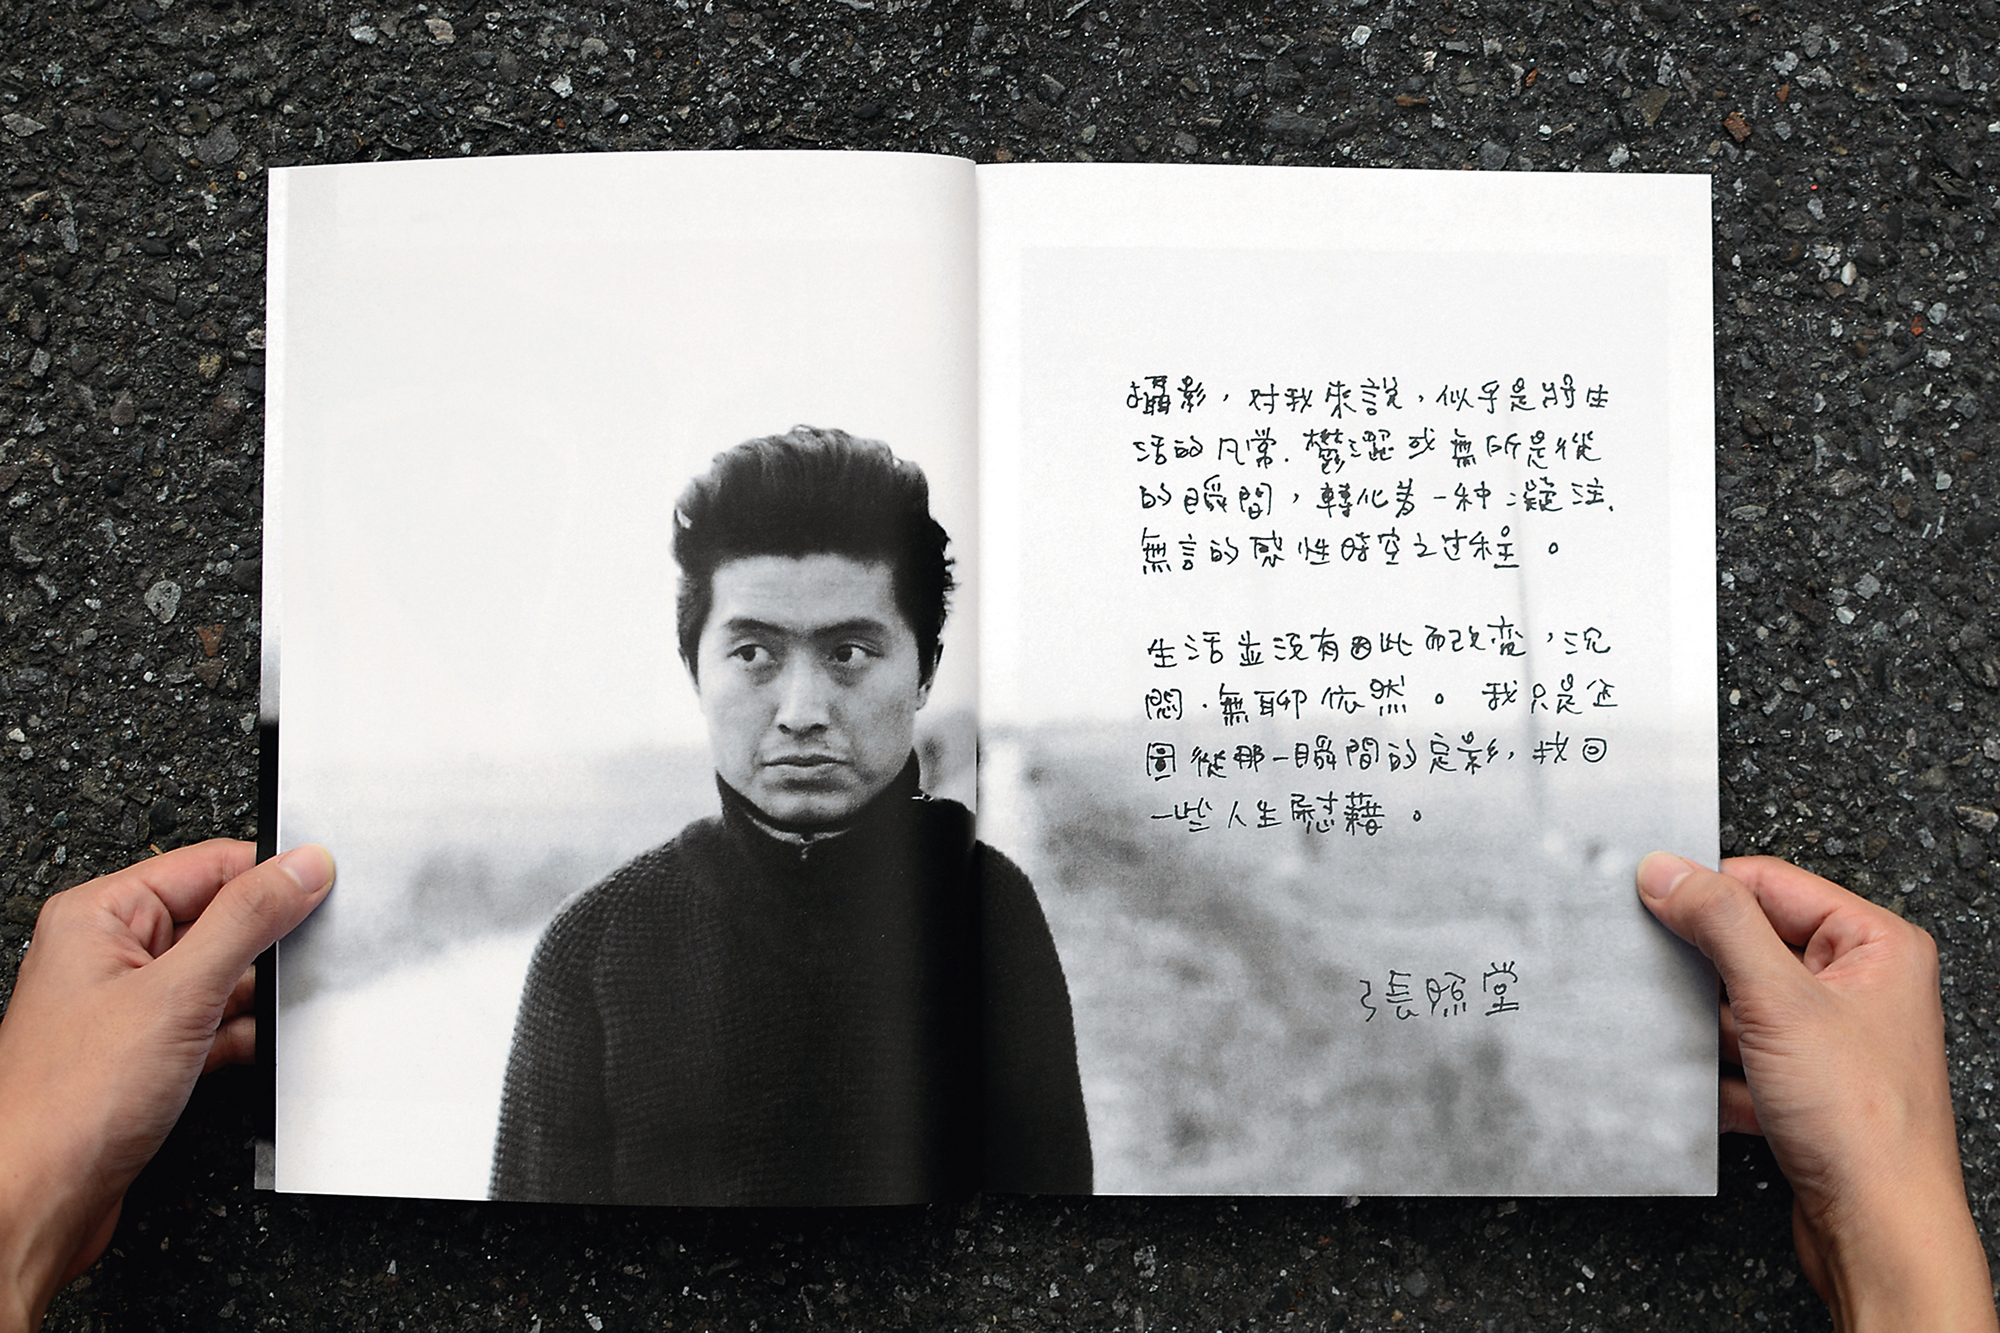 攝影，对我來說，似乎是將生
活的凡常．鬱澀或無所是從
的瞬間，轉化為一种凝注．
無言的感性時空之过程。
生活並沒有因此而改变，沉
悶．無聊依然。我只是企
圖從那一瞬間的定影，找回
一些人生慰藉。
張照堂